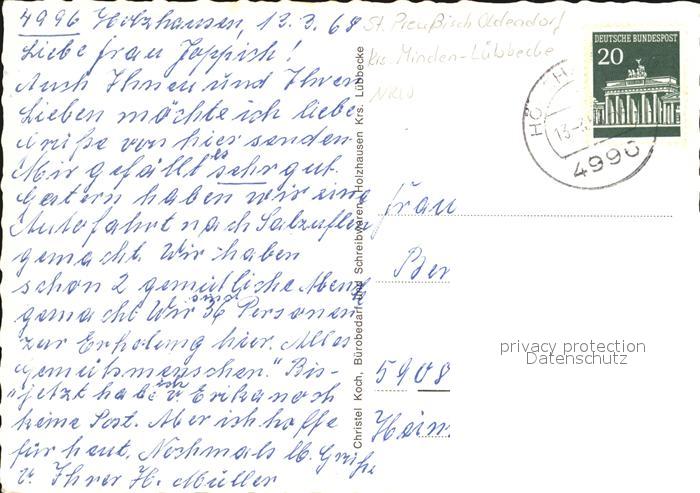 4996 Holzhausen, 12.3.68
Liebe Frau Joppich!
Auch Ihnen und Ihren
Lieben möchte ich liebe
Grüße von hier senden.
Mir gefällt es sehr gut.
Gestern haben wir eine
Autofahrt nach Salzuflen
gemacht. Wir haben
schon 2 gemütliche Abende
gemacht. Wir sind 36 Personen
zur Erholung hier. Alles
Gemütsmenschen." Bis-
jetzt hab ich v. Erika noch
keine Post. Aber ich hoffe
für heut. Nochmals lb. Grüße
v. Ihrer H. Müller
St. Preußisch Oldendorf
Krs. Minden-Lübbecke
NRW
Christel Koch, Bürobedarf und Schreibwaren, Holzhausen Krs. Lübbecke
DEUTSCHE BUNDESPOST
20
13-3
4990
Frau
Ber
5908
Heim
privacy protection
Datenschutz